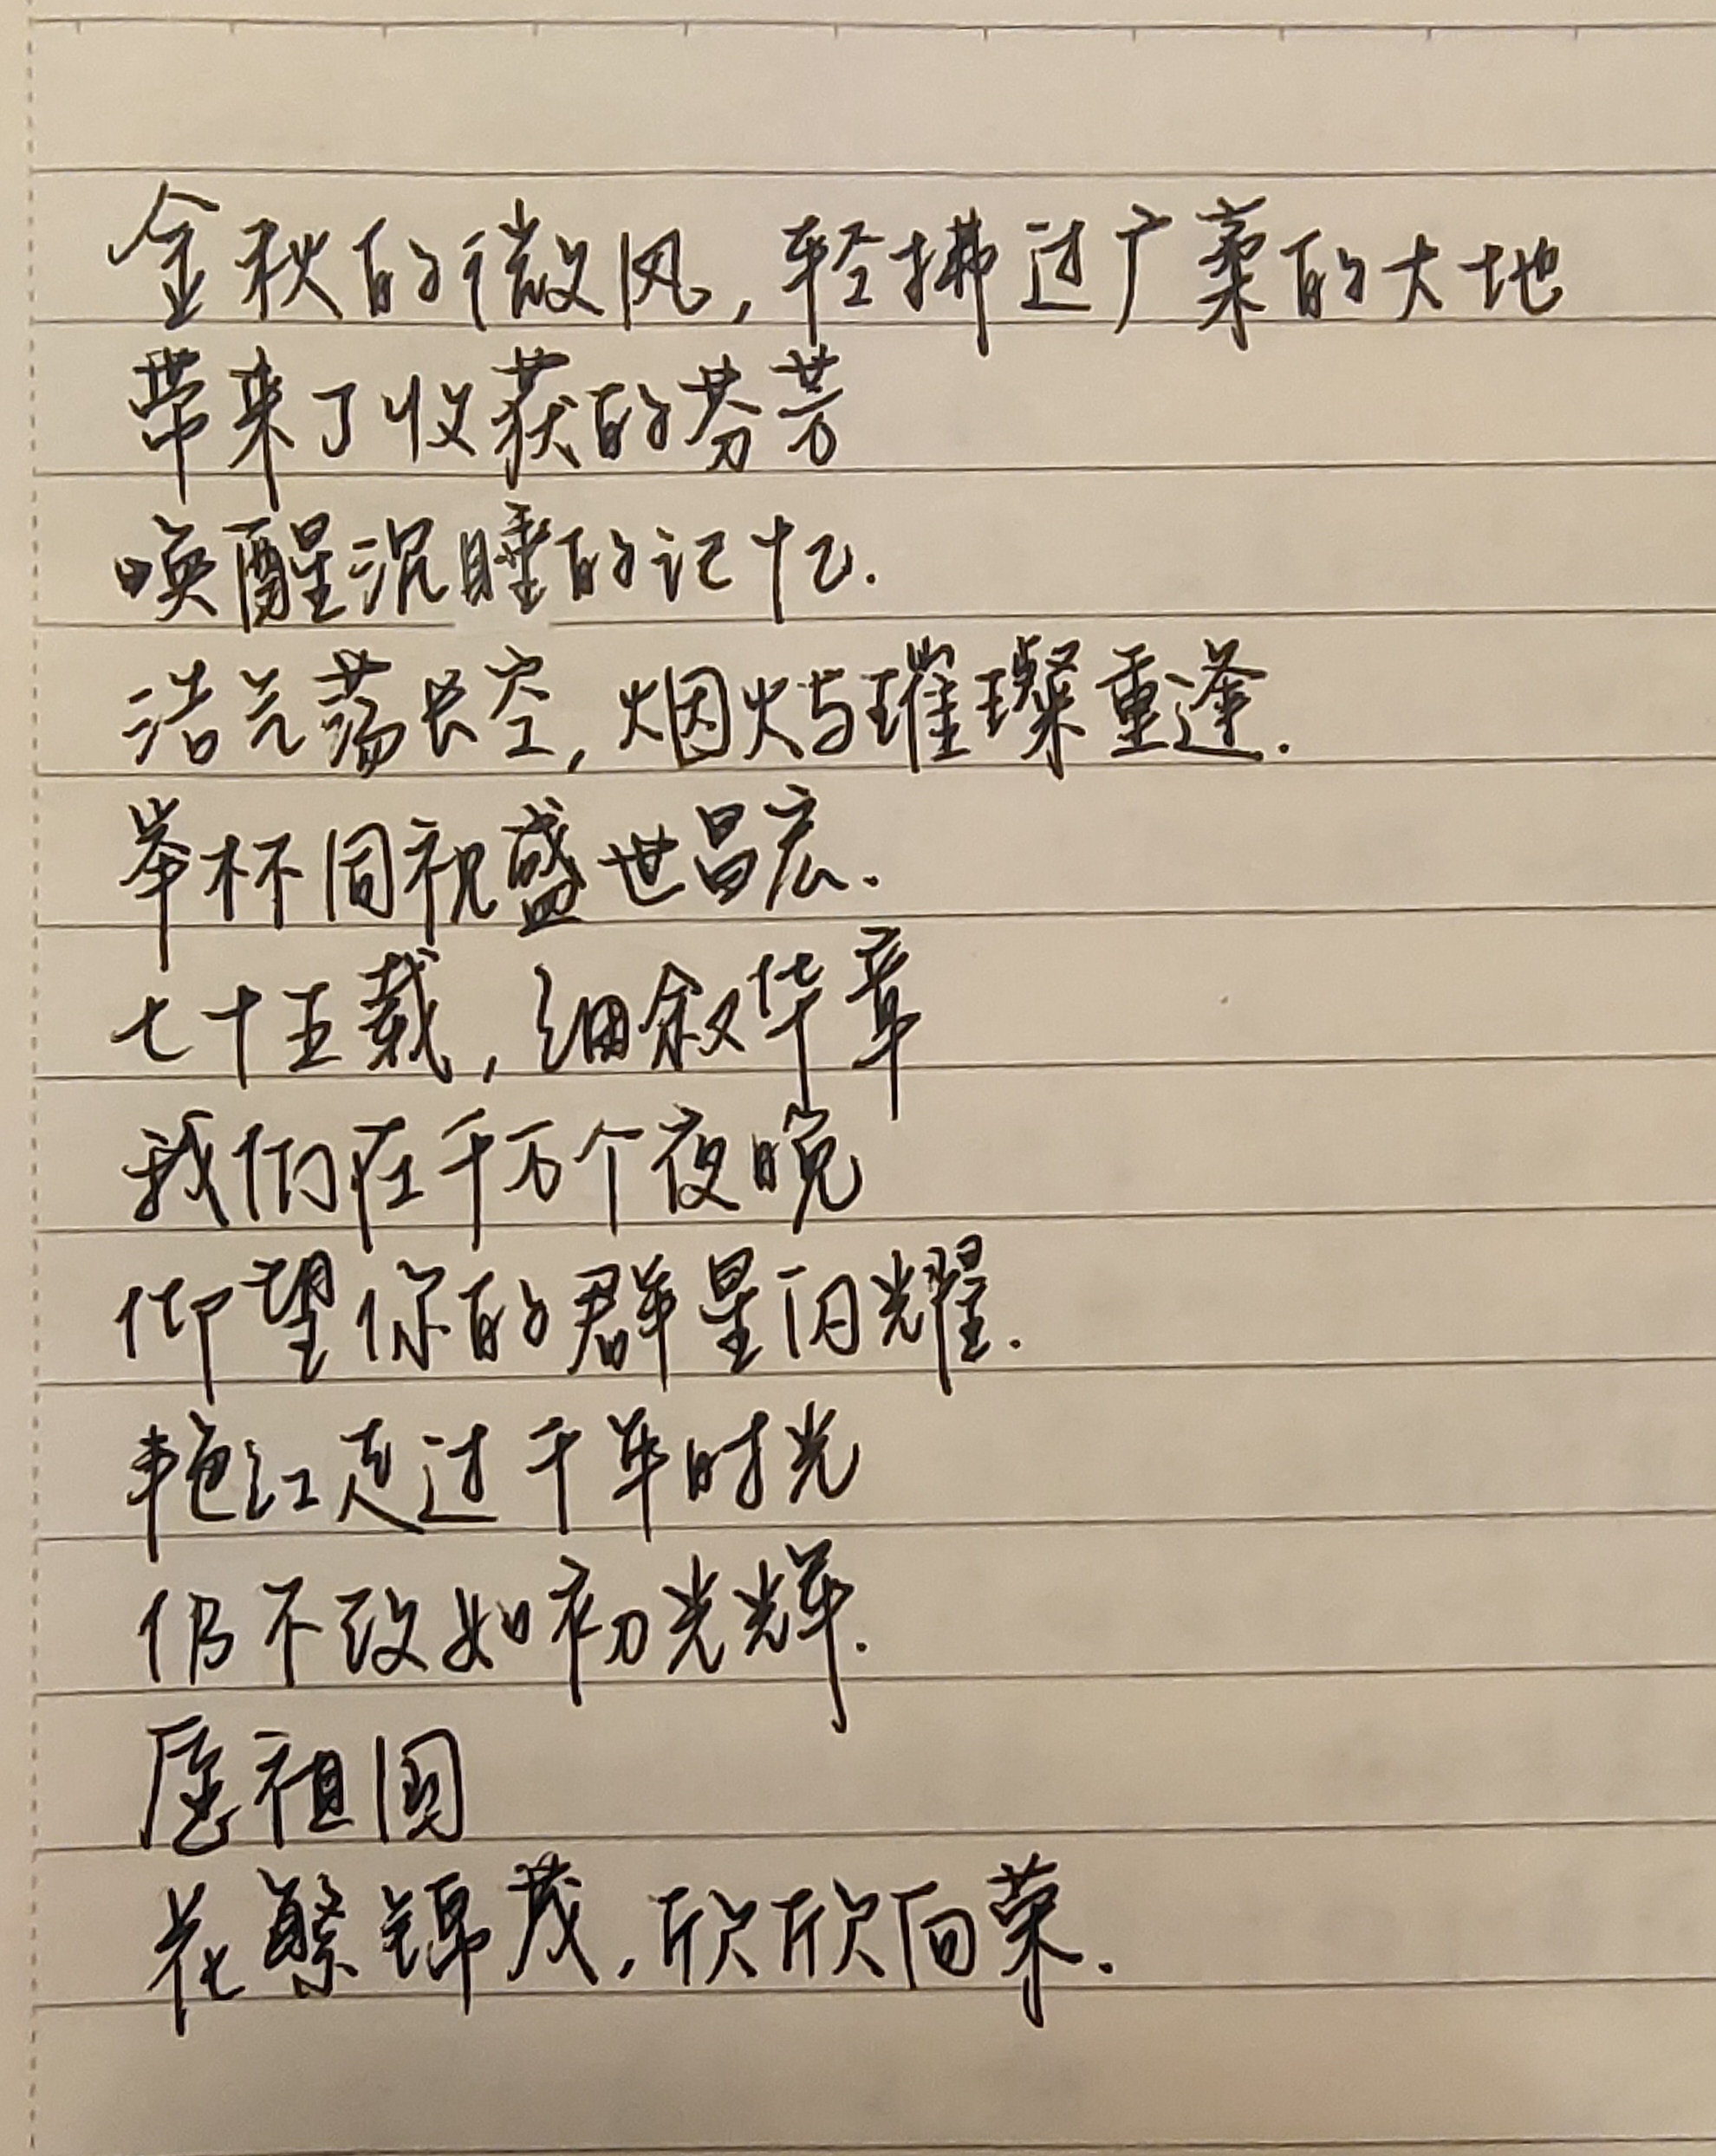 金秋的微风,轻拂过广袤的大地
带来了收获的芬芳
唤醒沉睡的记忆.
浩气荡长空,烟火与璀璨重逢.
举杯同祝盛世昌宏.
七十五载,细叙华章
我们在千万个夜晚
仰望你的群星闪耀.
艳红走过千年时光
仍不改如初光辉.
愿祖国
花繁锦茂,欣欣向荣.